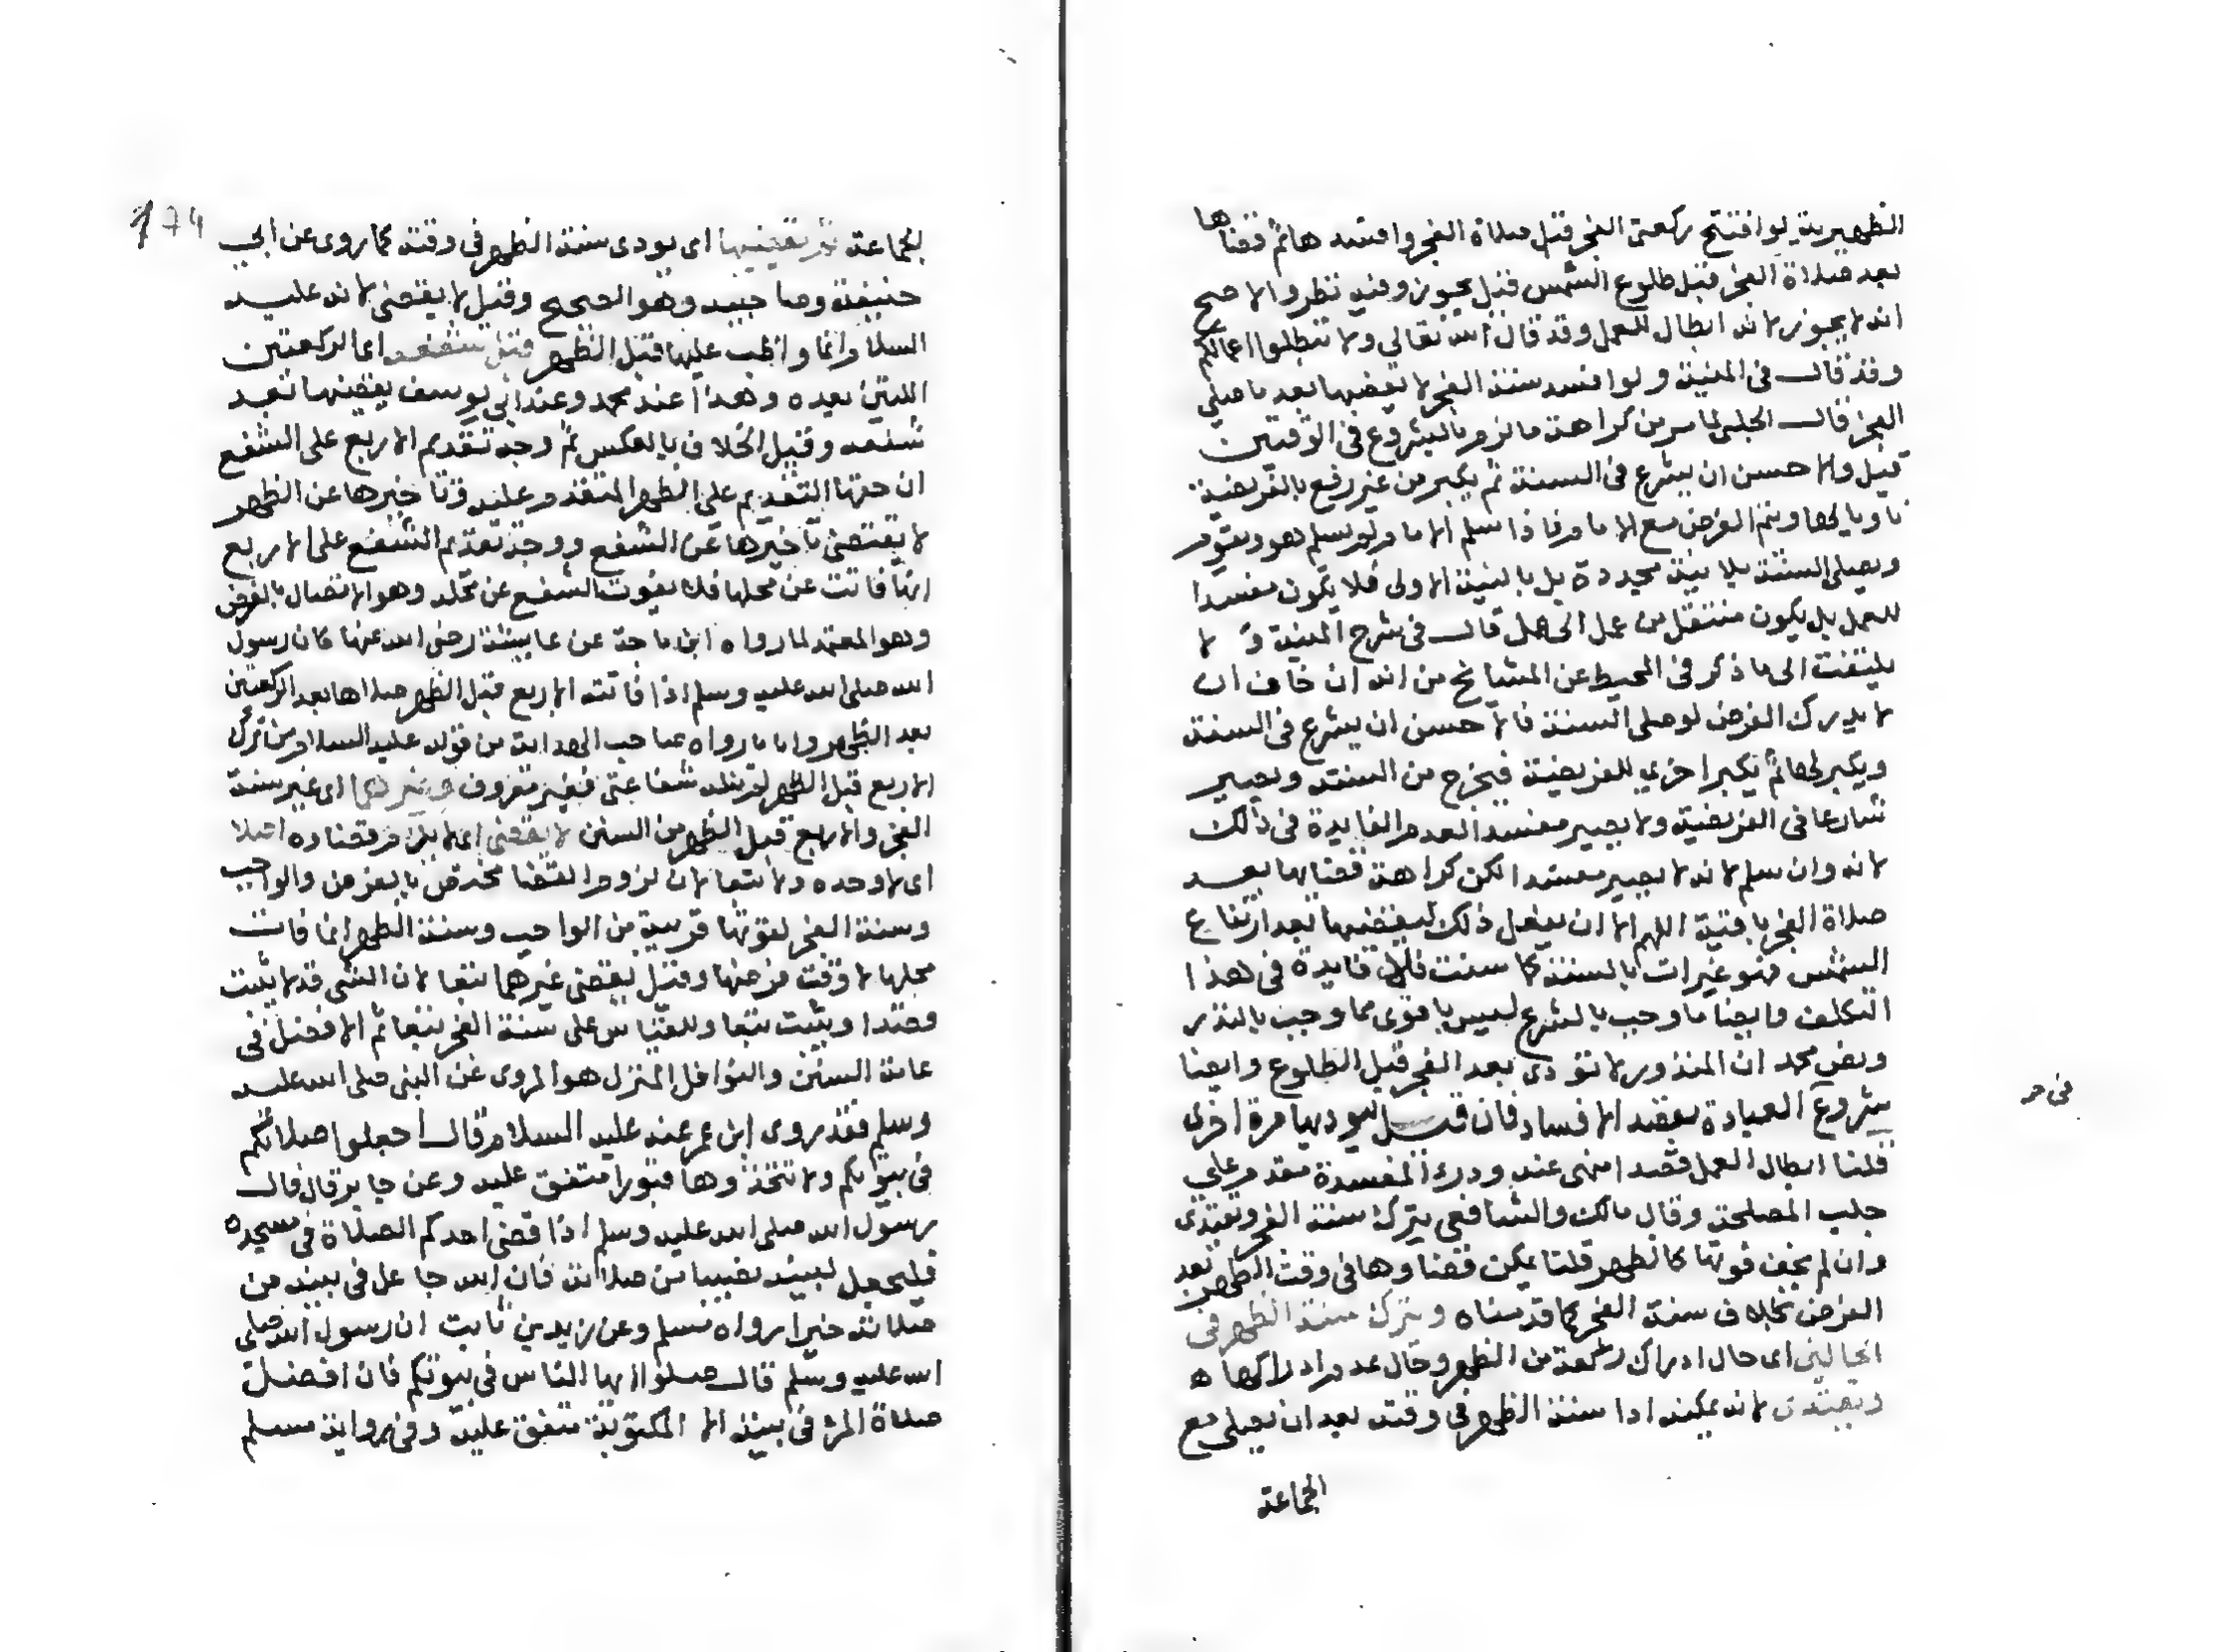 الظهيرية لو افتتح ركعتي الفجر قبل صلاة الفجر وافسدهما ثم قضاها
بعد صلاة الفجر قبل طلوع الشمس قيل يجوز وفيه نظر والاصح
انه لا يجوز لانه ابطال للعمل وقد قال الله تعالي ولا تبطلوا اعمالكم
وقد قال في المنية ولو افسد سنة الفجر لا يقضيها بعد ما صلي
الفجر قال الحلبي لما مر من كراهة ما لزم بالشروع في الوقتين
قيل والاحسن ان يشرع في السنة ثم يكبر من غير رفع بالفريضة
ناويا لها ويتم الفرض مع الامام فاذا سلم الامام لم يسلم هو ويقوم
ويصلي السنة بلا نية مجددة بل بالنية الاولى فلا يكون مفسدا
للعمل بل يكون منتقل من عمل الى عمل قال في شرح المنية ولا
يلتفت الى ما ذكر في المحيط عن المشايخ من انه ان خاف ان
لا يدرك الفرض لو صلى السنة فالاحسن ان يشرع في السنة
ويكبر لها ثم يكبر اخري للفريضة فيخرج من السنة ويصير
شارعا في الفريضة ولا يصير مفسدا لعدم الفايدة في ذلك
لانه وان سلم لانه لا يصير مفسدا لكن كراهة قضايها بعد
صلاة الفجر باقية اللهم الا ان يفعل ذلك ليقضيها بعد ارتفاع
الشمس فهو غير ات بالسنة كما سنت فلا فايدة في هذا
التكلف وايضا ما وجب بالشرع ليس باقوى مما وجب بالنذر
ونص محمد ان المنذور لا تؤدى بعد الفجر قبل الطلوع وايضا
شروع العبادة بقصد الافساد فان قيل ليوديها مرة اخرى
في حر
قلنا ابطال العمل قصدا منهى عنه ودرء المفسدة مقدم على
جلب المصلحة وقال مالك والشافعي يترك سنة الفجر ويقتدى
وان لم يخف فوتها كالظهر قلنا يمكن قضاوها في وقت الظهر بعد
الفرض بخلاف سنة الفجر كما قدمناه ويترك سنة الظهر في
الحالين اى حال ادراك ركعة من الظهر وحال عدم ادراكها
ويقتدى لانه يمكنه ادا سنة الظهر في وقته بعد ان يصلي مع
الجماعة
174
الجماعة ثم يقضيها اى يودى سنة الظهر في وقته كما روى عن ابي
حنيفة وصاحبيه وهو الصحيح وقيل لا يقضى لانه عليه
السلام انما واظب عليها قبل الظهر قبل شفعه اى الركعتين
اللتين بعده وهذا عند محمد وعند ابي يوسف يقضيها بعد
شفعه وقيل الخلاف بالعكس ثم وجه تقديم الاربع على الشفع
ان حقها التقديم على الظهر المتقدم عليه فتاخيرها عن الظهر
لا يقتضى تاخيرها عن الشفع ووجه تقديم الشفع على الاربع
انها فاتت عن محلها فلا يفوت الشفع عن محله وهو الاتصال بالفرض
وهو المعتمد لما رواه ابن ماجة عن عايشة رضى الله عنها كان رسول
الله صلى الله عليه وسلم اذا فاتته الاربع قبل الظهر صلاها بعد الركعتين
بعد الظهر واما ما رواه صاحب الهداية من قوله عليه السلام من ترك
الاربع قبل الظهر لم تنله شفاعتى فغير معروف وغيرهما اى غير سنة
الفجر والاربع قبل الظهر من السنن لا يقضى اى لا يلزم قضاوه اصلا
اى لا وحده ولا تبعا لان لزوم القضا مختص بالفرض والواجب
وسنة الفجر لقوتها قريبة من الواجب وسنة الظهر انما فاتت
محلها لا وقت فرضها وقيل يقضى غيرهما تبعا لان الشى قد لا يثبت
قصدا ويثبت تبعا وللقياس على سنة الفجر تبعا ثم الافضل في
عامة السنن والنوافل المنزل هو المروى عن النبي صلى الله عليه
وسلم فقد روى ابن عمر عنه عليه السلام قال اجعلوا صلاتكم
في بيوتكم ولا تتخذوها قبورا متفق عليه وعن جابر قال قال
رسول الله صلى الله عليه وسلم اذا قضى احدكم الصلاة في مسجده
فليجعل لبيته نصيبا من صلاته فان الله جاعل في بيته من
صلاته خيرا رواه مسلم وعن زيد بن ثابت ان رسول الله صلى
الله عليه وسلم قال صلوا ايها الناس في بيوتكم فان افضل
صلاة المرء في بيته الا المكتوبة متفق عليه وفي رواية مسلم